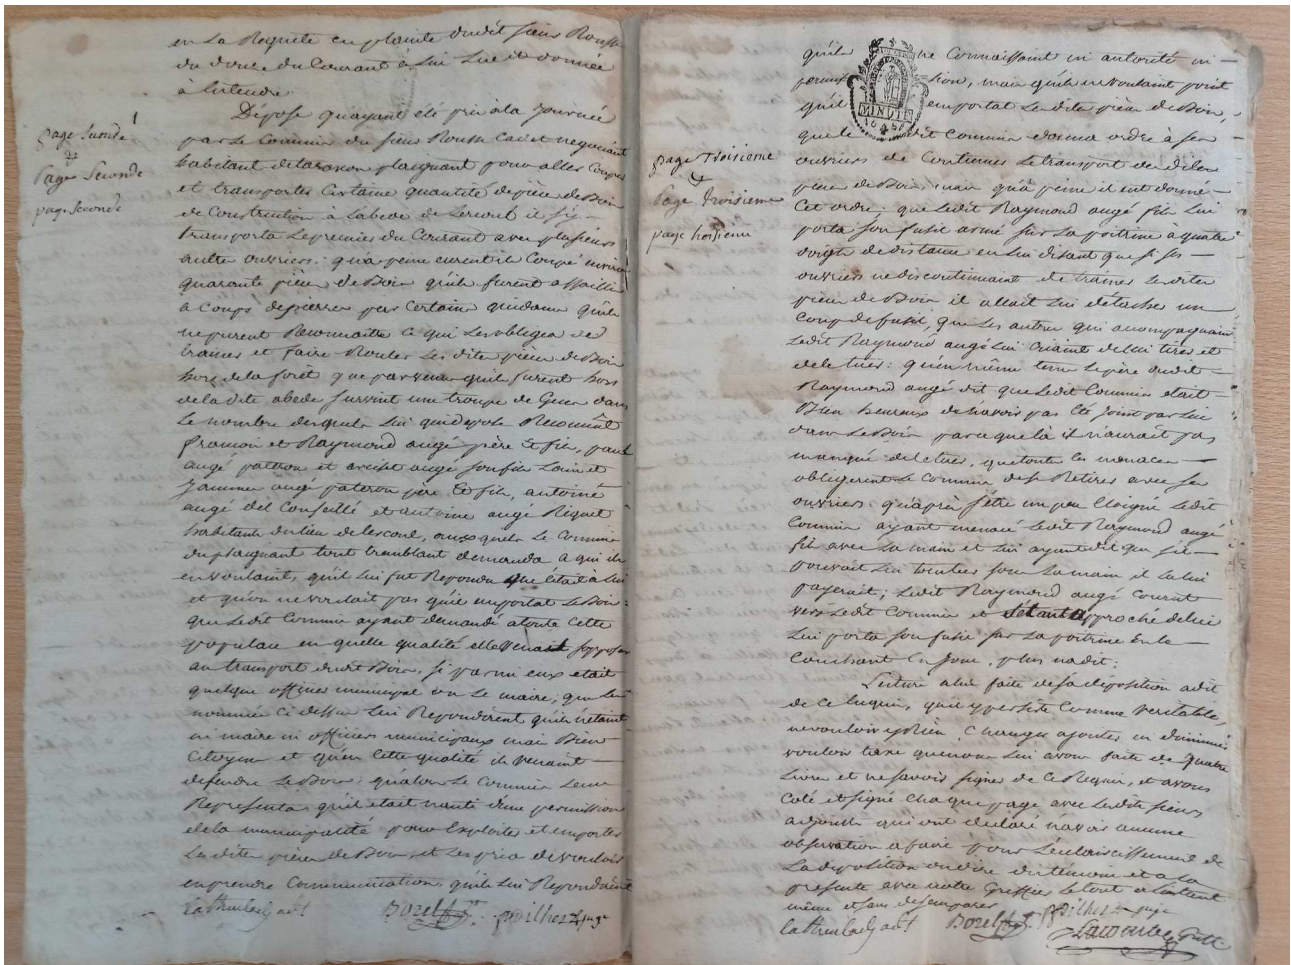 en la Requete en plainte dudit sieur Rousse
du douze du Courant à lui Lue et donnée
à entendre
Dépose quayant été pris a la journée
par le Commis du sieur Rousse Cadet negociant
habitant de tarascon plaignant pour aller Couper
et transporter Certaine quantité de pièces de Bois
de Construction à Labede de Lercoul il sy
transporta le premier du Courant avec plusieurs
autres ouvriers : qu'a peine eurent ils Coupé environ
quarante pièces de Bois qu'ils furent assaillis
à Coups de pierres par Certains quidams qu'ils
ne purent Reconnaitre ce qui les obligea de
trainer et faire Rouler les dites pieces de Bois
hors de la forêt que parvenus qu'ils furent hors
de la dite abede survint une troupe de Gens dans
le nombre desquels lui qui dépose Reconnut
françois et Raymond augé père et fils, paul
augé pathon et autre augé son fils Laine et
augé pateron père et fils, antoine
augé del Conseillé et antoine augé Riquet
habitants du lieu de lercoul, auxquels le Commis
du plaignant tout tremblant demanda a qui ils
en voulaint, qu'il lui fut Repondu que c'etait à lui
et qu'on ne voulait pas qu'il emportat le Bois :
que ledit Commis ayant demandé a toute cette
populace en quelle qualité elle venait sopposer
au transport dudit Bois, si parmi eux etait
quelque officier municipal ou le maire, que les
nommés ci dessus lui Repondirent qu'ils n'étaint
ni maire ni officiers municipaux mai Bien
Citoyens et qu'en cette qualité ils venaint
defendre le Bois : qu'alors le Commis leur
Representa qu'il était nanti d'une permission
de la municipalité pour Exploiter et emporter
les dites pieces de Bois, et les pria de vouloir
en prendre Communication, qu'ils lui Repondirent
Borel Pilhes juge
page seconde
Page Seconde
page seconde
qu'ils ne Connaissaint ni autorité ni
permission, mais qu'ils ne voulaint point
qu'il emportat les dites pièces de Bois,
que le dit Commis donna ordre à ses
ouvriers de Continuer le transport des dites
pieces de Bois, mais qu'à peine il eut donné
cet ordre, que ledit Raymond augé fils lui
porta son fusil armé sur la poitrine a quatre
doigts de distance en lui disant que si ses
ouvriers ne discontinuaint de trainer les dites
pieces de Bois il allait lui détacher un
coup de fusil, que les autres qui accompagnaint
ledit Raymond augé lui criaint de lui tirer et
de le tuer : qu'en même tems le père dudit
Raymond augé dit que ledit Commis etait
Bien heureux de n'avoir pas été joint par lui
dans le Bois parceque là il n'aurait pas
manqué de le tuer, que toutes les menaces
obligerent le Commis de se Retirer avec ses
ouvriers : qu'après s'être un peu Eloigné ledit
Commis ayant menacé ledit Raymond augé
fils avec la main et lui ayant dit que s'il
pouvait lui tomber sous la main il la lui
payerait ; ledit Raymond augé Courut
vers ledit Commis et s'etant approché de lui
lui porta son fusil sur la poitrine en le
Couchant en joue, plus na dit :
Lecture a lui faite de sa déposition a dit
de ce Requis, qu'il y persiste Comme veritable,
ne vouloir y Rien Changer ajouter ni diminuer
vouloir taxe que nous lui avons faite de quatre
Livres et ne savoir signer de ce Requis, et avons
coté et signé chaque page avec lesdits sieurs
adjoints qui ont declaré n'avoir aucune
observation a faire pour l'éclaircissement de
la deposition ou dire du témoin et a la
presente avec notre Greffier le tout a l'instant
même et sans desemparer
Borel Pilhes juge
Lacombe Greff.
page troisieme
Page Troisieme
page troisieme
MINUTE